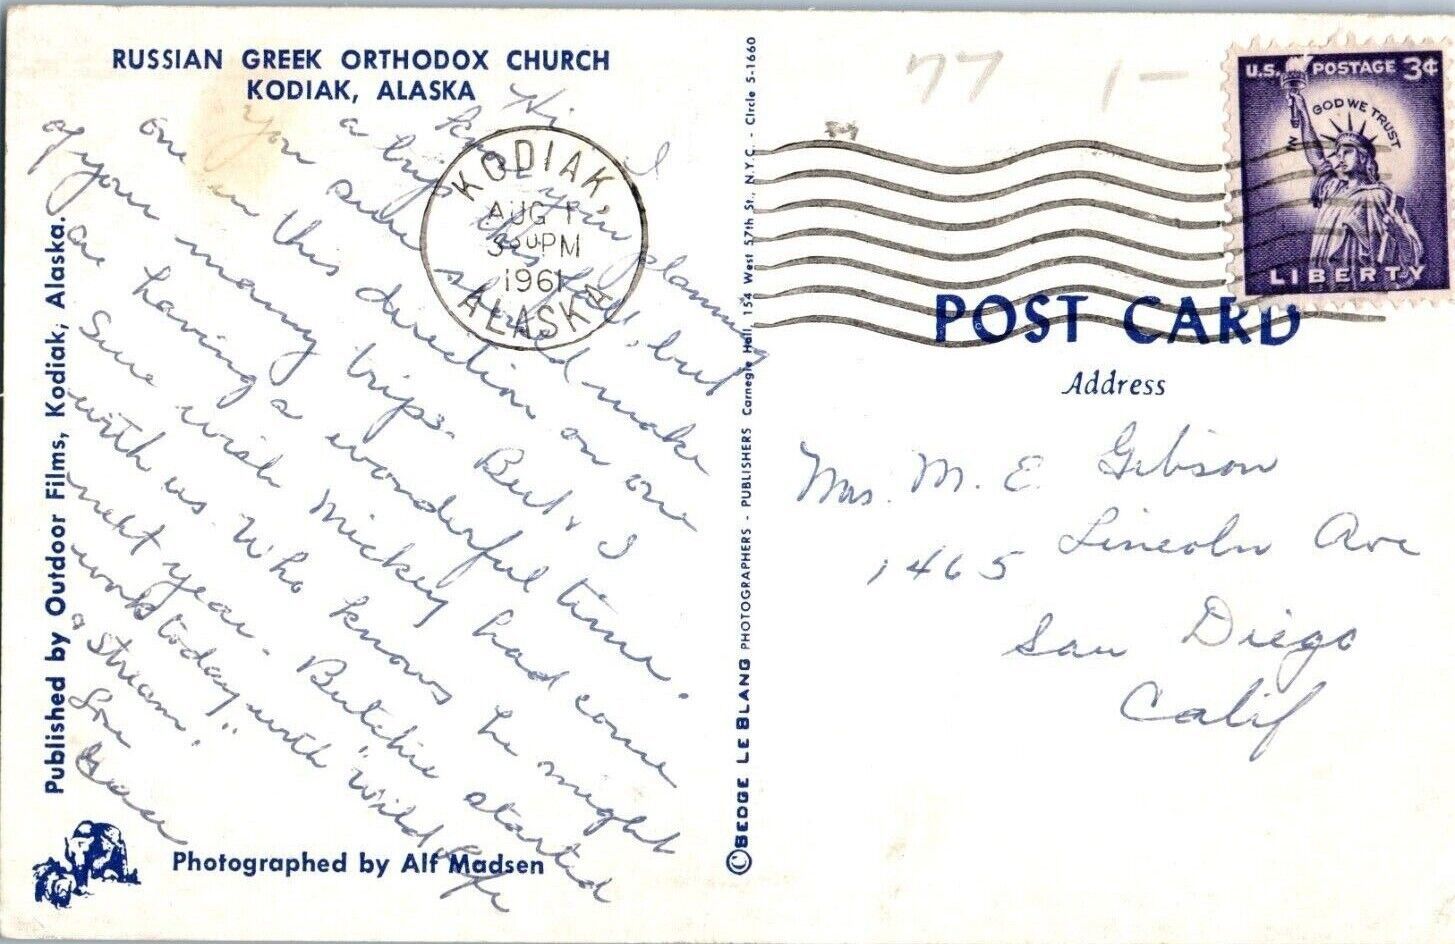 RUSSIAN GREEK ORTHODOX CHURCH
KODIAK, ALASKA
Hi,
I
you planning
a trip this fall, but
you should make
one in this direction on one
of your many trips. But & I
are having a wonderful time.
Sure wish Mickey had come
with us. Who knows he might
next year. Butchie started
work today with "Wild life
& Stream".
Love
Grace
Published by Outdoor Films, Kodiak, Alaska.
Photographed by Alf Madsen
KODIAK,
AUG 1
3 30 PM
1961
ALASKA
PHOTOGRAPHERS - PUBLISHERS Carnegie Hall, 154 West 57th St., N.Y.C. - Circle 5-1660
77 1-
U.S. POSTAGE 3¢
IN GOD WE TRUST
LIBERTY
POST CARD
Address
Mrs. M. E. Gibson
1465 Lincoln Ave
San Diego
Calif